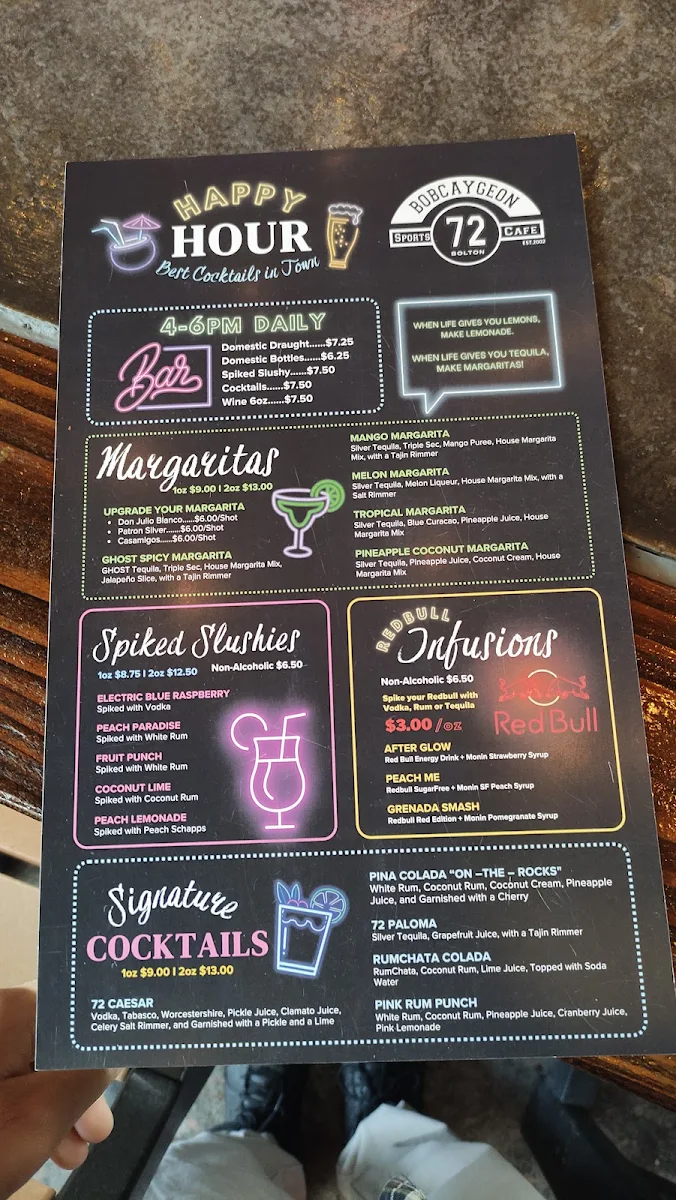 HAPPY
HOUR
Best Cocktails in Town
BOBCAYGEON
SPORTS 72 CAFE
BOLTON
EST.2002
4-6PM DAILY
Bar
Domestic Draught......$7.25
Domestic Bottles......$6.25
Spiked Slushy......$7.50
Cocktails......$7.50
Wine 6oz......$7.50
WHEN LIFE GIVES YOU LEMONS,
MAKE LEMONADE.
WHEN LIFE GIVES YOU TEQUILA,
MAKE MARGARITAS!
Margaritas
1oz $9.00 | 2oz $13.00
UPGRADE YOUR MARGARITA
• Don Julio Blanco......$6.00/Shot
• Patron Silver......$6.00/Shot
• Casamigos......$6.00/Shot
GHOST SPICY MARGARITA
GHOST Tequila, Triple Sec, House Margarita Mix,
Jalapeño Slice, with a Tajin Rimmer
MANGO MARGARITA
Silver Tequila, Triple Sec, Mango Puree, House Margarita
Mix, with a Tajin Rimmer
MELON MARGARITA
Silver Tequila, Melon Liqueur, House Margarita Mix, with a
Salt Rimmer
TROPICAL MARGARITA
Silver Tequila, Blue Curacao, Pineapple Juice, House
Margarita Mix
PINEAPPLE COCONUT MARGARITA
Silver Tequila, Pineapple Juice, Coconut Cream, House
Margarita Mix
Spiked Slushies
1oz $8.75 | 2oz $12.50 Non-Alcoholic $6.50
ELECTRIC BLUE RASPBERRY
Spiked with Vodka
PEACH PARADISE
Spiked with White Rum
FRUIT PUNCH
Spiked with White Rum
COCONUT LIME
Spiked with Coconut Rum
PEACH LEMONADE
Spiked with Peach Schapps
REDBULL
Infusions
Non-Alcoholic $6.50
Spike your Redbull with
Vodka, Rum or Tequila
$3.00 /oz
Red Bull
AFTER GLOW
Red Bull Energy Drink + Monin Strawberry Syrup
PEACH ME
Redbull SugarFree + Monin SF Peach Syrup
GRENADA SMASH
Redbull Red Edition + Monin Pomegranate Syrup
Signature
COCKTAILS
1oz $9.00 | 2oz $13.00
72 CAESAR
Vodka, Tabasco, Worcestershire, Pickle Juice, Clamato Juice,
Celery Salt Rimmer, and Garnished with a Pickle and a Lime
PINA COLADA "ON –THE – ROCKS"
White Rum, Coconut Rum, Coconut Cream, Pineapple
Juice, and Garnished with a Cherry
72 PALOMA
Silver Tequila, Grapefruit Juice, with a Tajin Rimmer
RUMCHATA COLADA
RumChata, Coconut Rum, Lime Juice, Topped with Soda
Water
PINK RUM PUNCH
White Rum, Coconut Rum, Pineapple Juice, Cranberry Juice,
Pink Lemonade